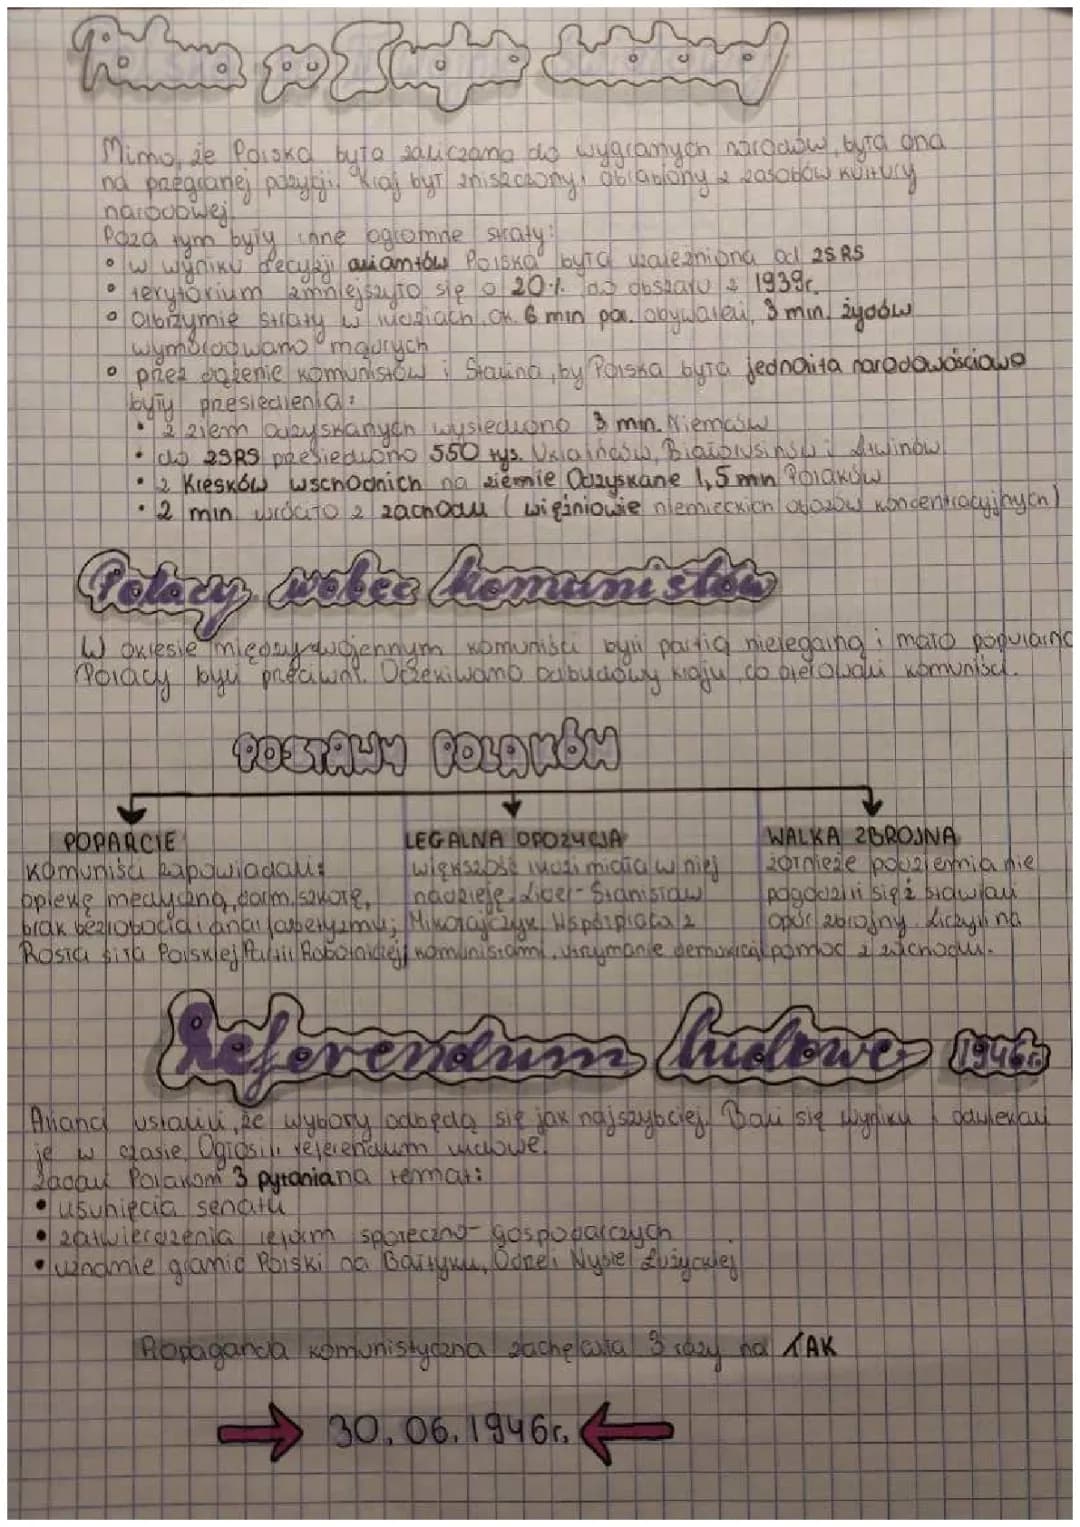 Polska po II wojnie światowej
Mimo, że Polska była zaliczana do wygranych narodów, była ona
na przegranej pozycji. Kraj był zniszczony, obrabiony z zasobów kultury
narodowej.
Poza tym były inne ogromne straty:
• w wyniku decyzji aliantów Polska była uzależniona od ZSRS
• terytorium zmniejszyło się o 20% do obszaru z 1939r.
• olbrzymie straty w ludziach. ok. 6 mln pol. obywateli, 3 mln. żydów
wymordowano mądrych
• przez dążenie komunistów i Stalina, by Polska była jednolita narodowościowo
były przesiedlenia:
• z ziem odzyskanych wysiedlono 3 mln. Niemców
• do ZSRS przesiedlono 550 tys. Ukraińców, Białorusinów i Litwinów
• z Kresków wschodnich na ziemie Odzyskane 1,5 mln Polaków
• 2 mln wróciło z zachodu (więźniowie niemieckich obozów koncentracyjnych)
Polacy wobec komunistów
W okresie międzywojennym komuniści byli partią nielegalną i mało popularną
Polacy byli przeciwni. Oczekiwano odbudowy kraju, co oferowali komuniści.
POSTAWY POLAKÓW
POPARCIE
komuniści zapowiadali:
opiekę medyczną, darm. szkołę,
brak bezrobocia i analfabetyzmu;
Rosła siła Polskiej Partii Robotniczej
LEGALNA OPOZYCJA
większość ludzi miała w niej
nadzieję. Lider - Stanisław
Mikołajczyk. Współpraca z
komunistami, utrzymanie demokracji
WALKA ZBROJNA
żołnierze podziemia nie
pogodzili się i stawiali
opór zbrojny. Liczyli na
pomoc z zachodu.
Referendum ludowe 1946r.
Alianci ustalili, że wybory odbędą się jak najszybciej. Bali się wyniku i odwlekali
je w czasie. Ogłosili referendum ludowe.
Zadali Polakom 3 pytania na temat:
• usunięcia senatu
• zatwierdzenia reform społeczno-gospodarczych
• uznanie granic Polski na Bałtyku, Odrze i Nysie Łużyckiej
Propaganda komunistyczna zachęcała 3 razy na TAK
30.06.1946r.